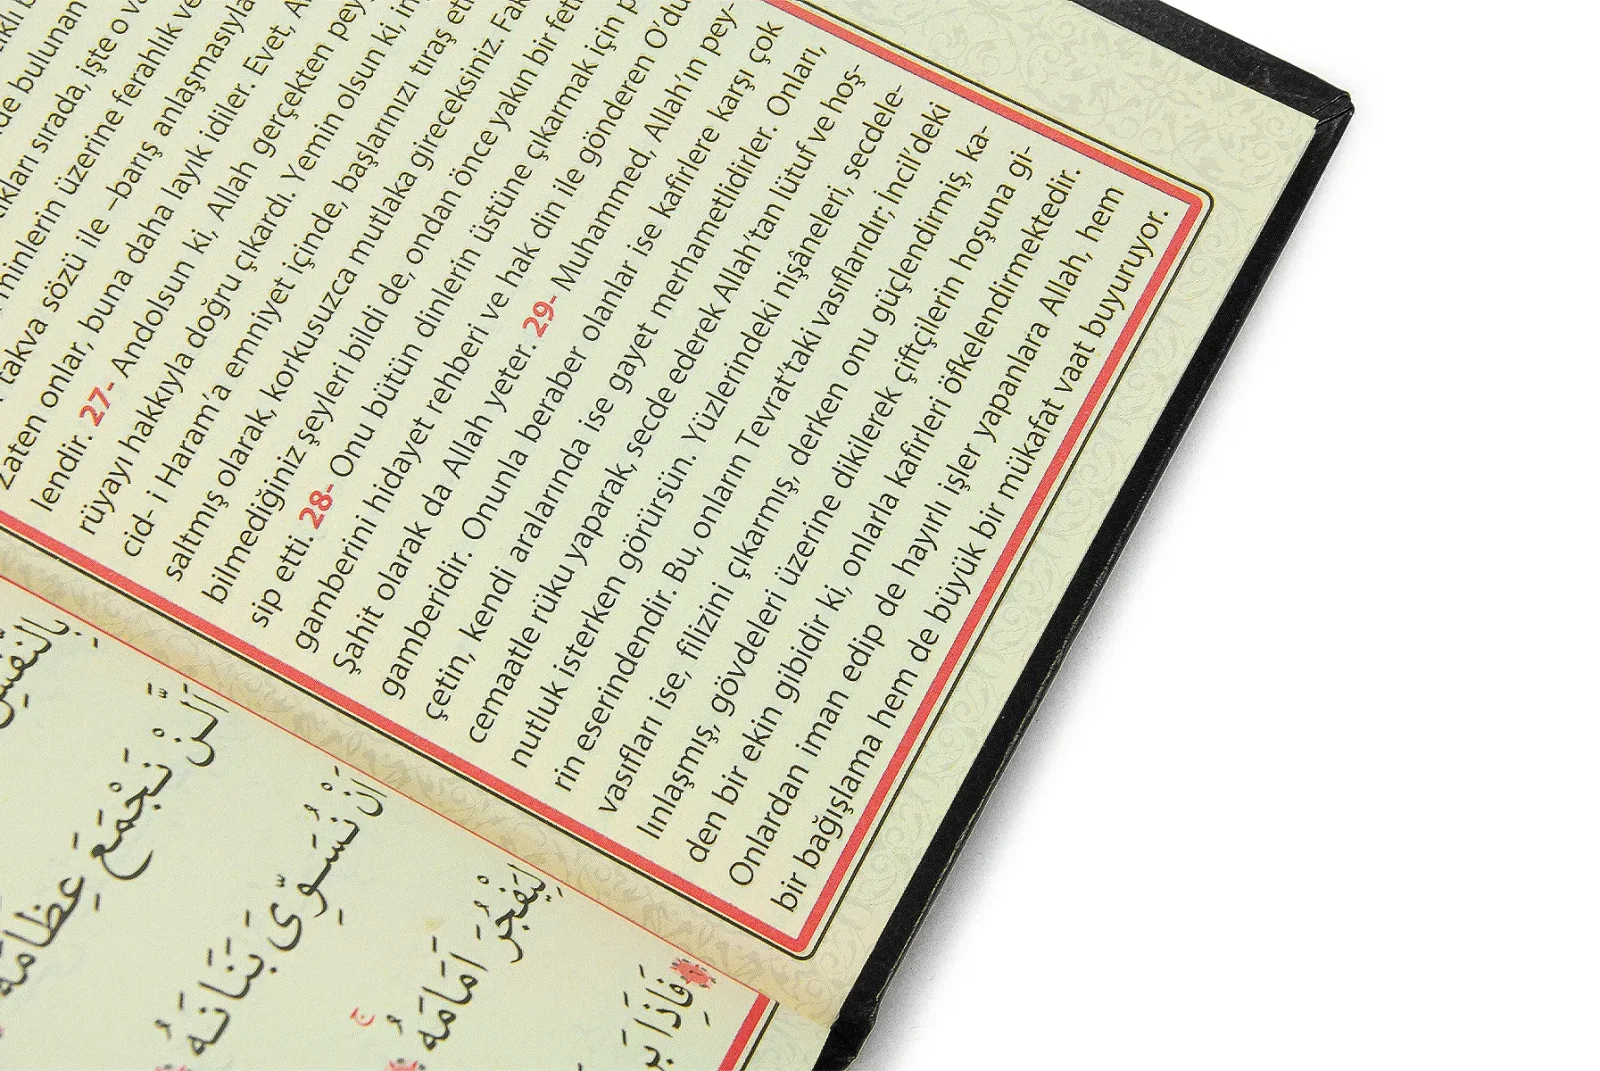 de bulunan
sırada, işte o
minlerin üzerine ferahlık ve
takva sözü ile –barış anlaşmasıyla
zaten onlar, buna daha layık idiler. Evet,
lendir. 27- Andolsun ki, Allah gerçekten
rüyayı hakkıyla doğru çıkardı. Yemin olsun ki,
cid- i Haram'a emniyet içinde, başlarınızı tıraş
saltmış olarak, korkusuzca mutlaka gireceksiniz.
bilmediğiniz şeyleri bildi de, ondan önce yakın bir
sip etti. 28- Onu bütün dinlerin üstüne çıkarmak için
gamberini hidayet rehberi ve hak din ile gönderen O'du
Şahit olarak da Allah yeter. 29- Muhammed, Allah'ın pey-
gamberidir. Onunla beraber olanlar ise kafirlere karşı çok
çetin, kendi aralarında ise gayet merhametlidirler. Onları,
cemaatle rüku yaparak, secde ederek Allah'tan lütuf ve hoş-
nutluk isterken görürsün. Yüzlerindeki nişâneleri, secdele-
rin eserindendir. Bu, onların Tevrat'taki vasıflarıdır; İncil'deki
vasıfları ise, filizini çıkarmış, derken onu güçlendirmiş, ka-
lınlaşmış, gövdeleri üzerine dikilerek çiftçilerin hoşuna gi-
den bir ekin gibidir ki, onlarla kafirleri öfkelendirmektedir.
Onlardan iman edip de hayırlı işler yapanlara Allah, hem
bir bağışlama hem de büyük bir mükafat vaat buyuruyor.
بِالنَّفْسِ
اَلَّنْ نَجْمَعَ عِظَامَهُ
اَنْ نُسَوِّىَ بَنَانَهُ
لِيَفْجُرَ اَمَامَهُ
فَاِذَا